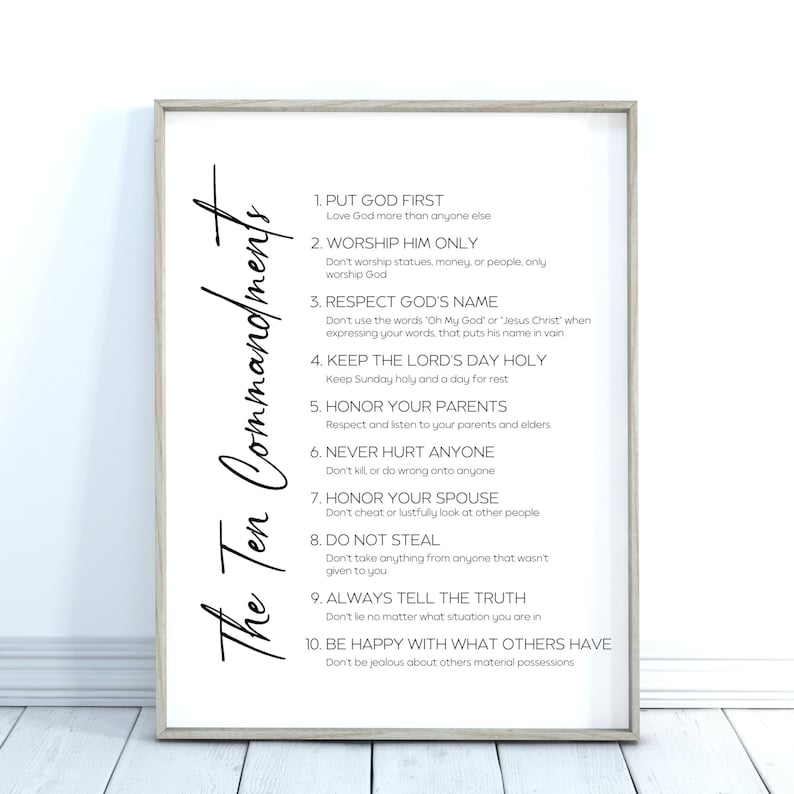 The Ten Commandments
1. PUT GOD FIRST
Love God more than anyone else
2. WORSHIP HIM ONLY
Don't worship statues, money, or people, only
worship God
3. RESPECT GOD'S NAME
Don't use the words "Oh My God" or "Jesus Christ" when
expressing your words, that puts his name in vain
4. KEEP THE LORD'S DAY HOLY
Keep Sunday holy and a day for rest
5. HONOR YOUR PARENTS
Respect and listen to your parents and elders
6. NEVER HURT ANYONE
Don't kill, or do wrong onto anyone
7. HONOR YOUR SPOUSE
Don't cheat or lustfully look at other people
8. DO NOT STEAL
Don't take anything from anyone that wasn't
given to you
9. ALWAYS TELL THE TRUTH
Don't lie no matter what situation you are in
10. BE HAPPY WITH WHAT OTHERS HAVE
Don't be jealous about others material possessions